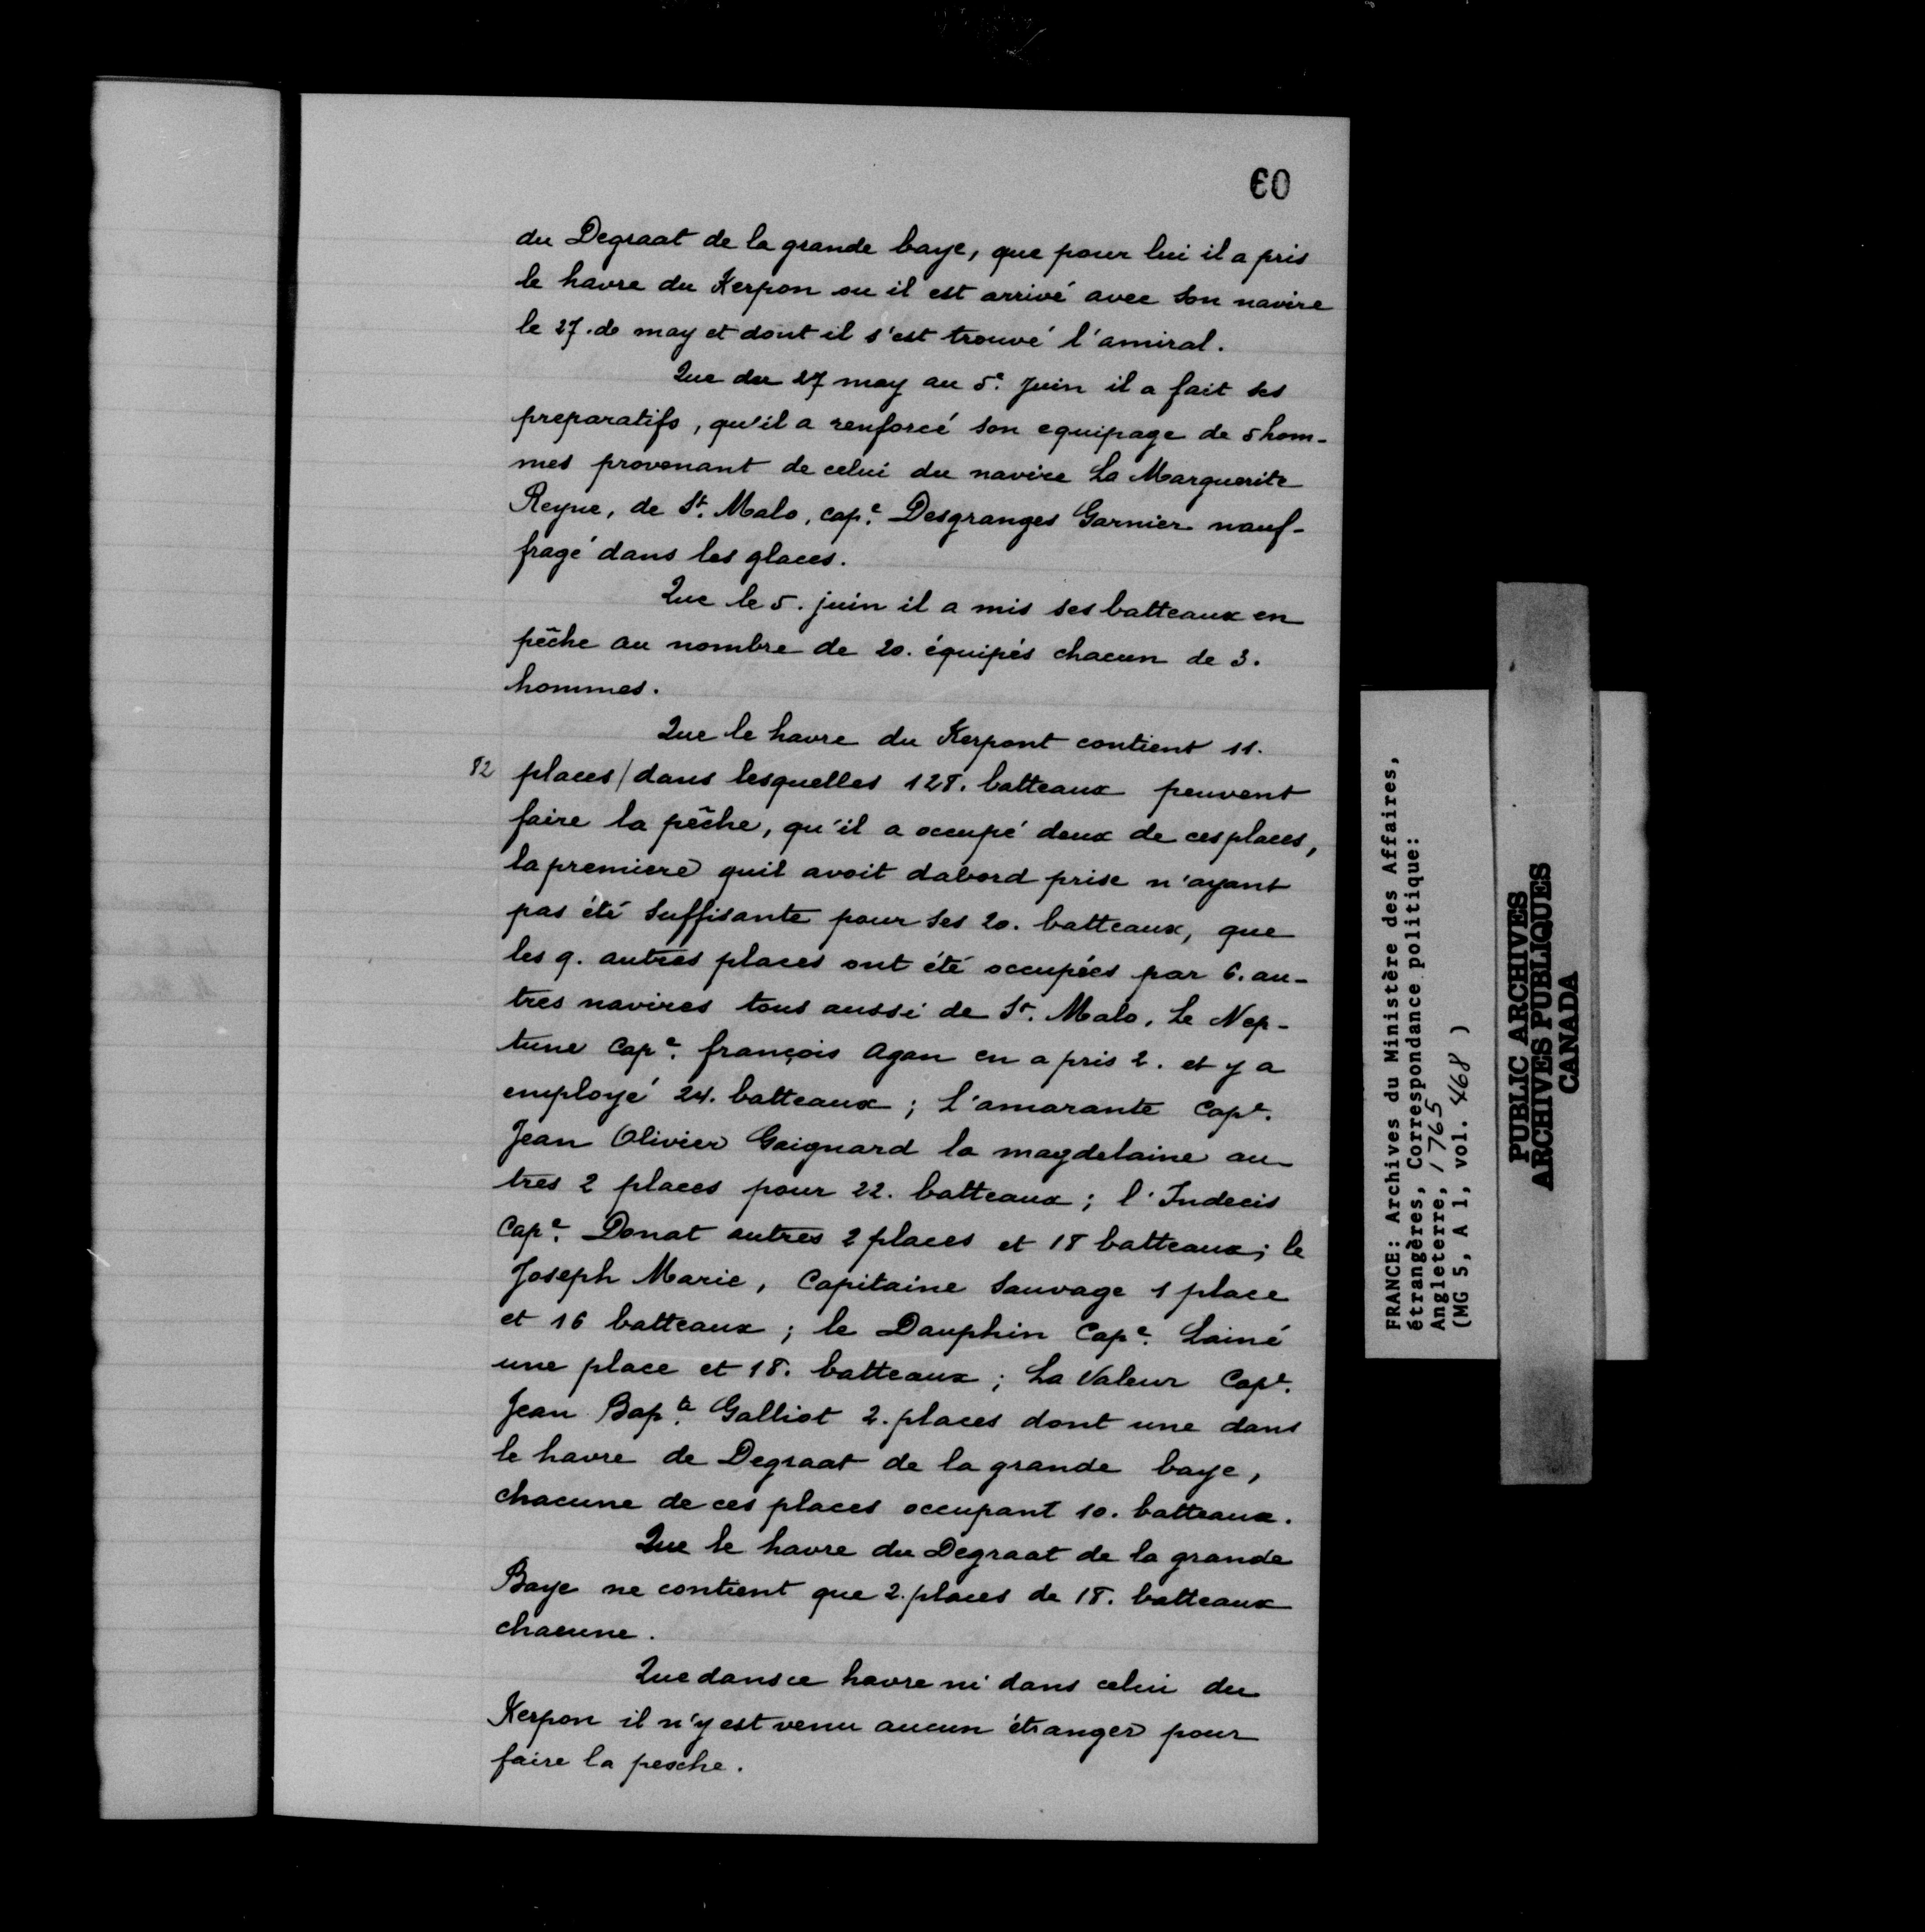 60
du Degraat de la grande baye, que pour lui il a pris
le havre du Kerpon ou il est arrivé avec son navire
le 27. de may et dont il s'est trouvé l'amiral.
Que du 27 may au 5e. Juin il a fait ses
preparatifs, qu'il a renforcé son equipage de 5 hom-
mes provenant de celui du navire La Marguerite
Reyne, de St. Malo, cape. Desgranges Garnier nauf-
fragé dans les glaces.
Que le 5. juin il a mis ses batteaux en
pêche au nombre de 20. équipés chacun de 3.
hommes.
Que le havre du Kerpont contient 11.
82 places / dans lesquelles 128. batteaux peuvent
faire la pêche, qu'il a occupé deux de ces places,
la premiere quil avoit dabord prise n'ayant
pas été suffisante pour ses 20. batteaux, que
les 9. autres places ont été occupées par 6. au-
tres navires tous aussi de St. Malo. Le Nep-
tune Cape. françois Agan en a pris 2. et y a
employé 24. batteaux ; L'amarante Cape.
Jean Olivier Gaignard la magdelaine au-
tres 2 places pour 22. batteaux ; l'Indecis
Cape. Donat autres 2 places et 18 batteaux ; le
Joseph Marie, Capitaine Sauvage 1 place
et 16 batteaux ; le Dauphin Cape. Lainé
une place et 18. batteaux ; La Valeur Cape.
Jean Bapte. Galliot 2. places dont une dans
le havre de Degraat de la grande baye,
chacune de ces places occupant 10. batteaux.
Que le havre du Degraat de la grande
Baye ne contient que 2. places de 18. batteaux
chacune.
Que dans ce havre ni dans celui du
Kerpon il n'y est venu aucun étranger pour
faire la pesche.
FRANCE: Archives du Ministère des Affaires,
étrangères, Correspondance politique:
Angleterre, 1765
(MG 5, A 1, vol. 468 )
PUBLIC ARCHIVES
ARCHIVES PUBLIQUES
CANADA